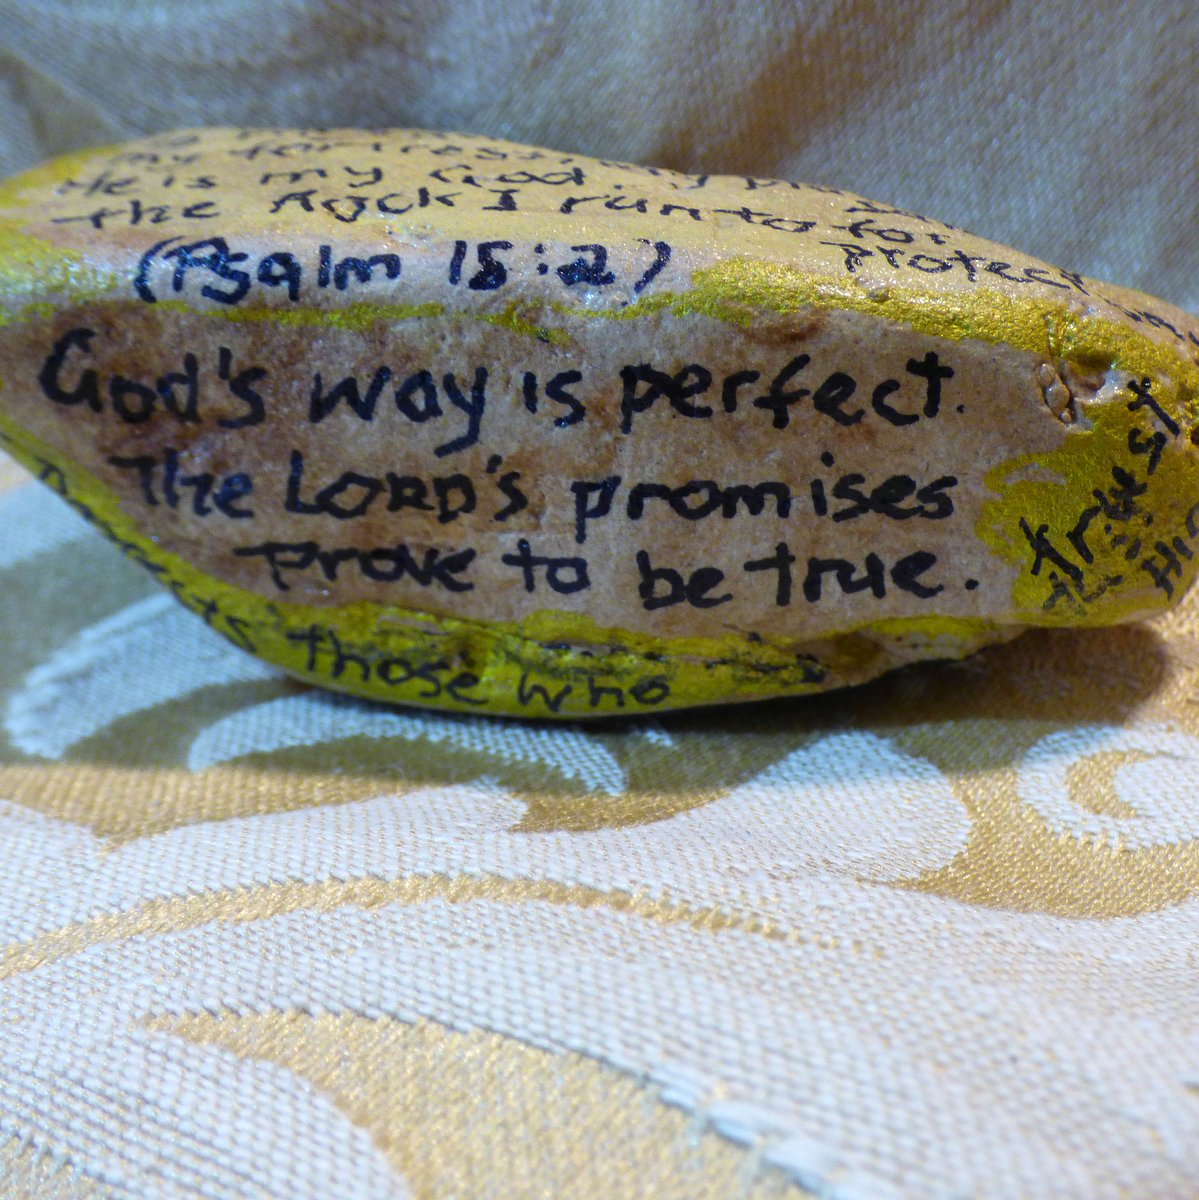 my fortress, my
He is my God.
the Rock I run to for
protect
(Psalm 18:2)
God's way is perfect.
The LORD'S promises
prove to be true.
those who
trust